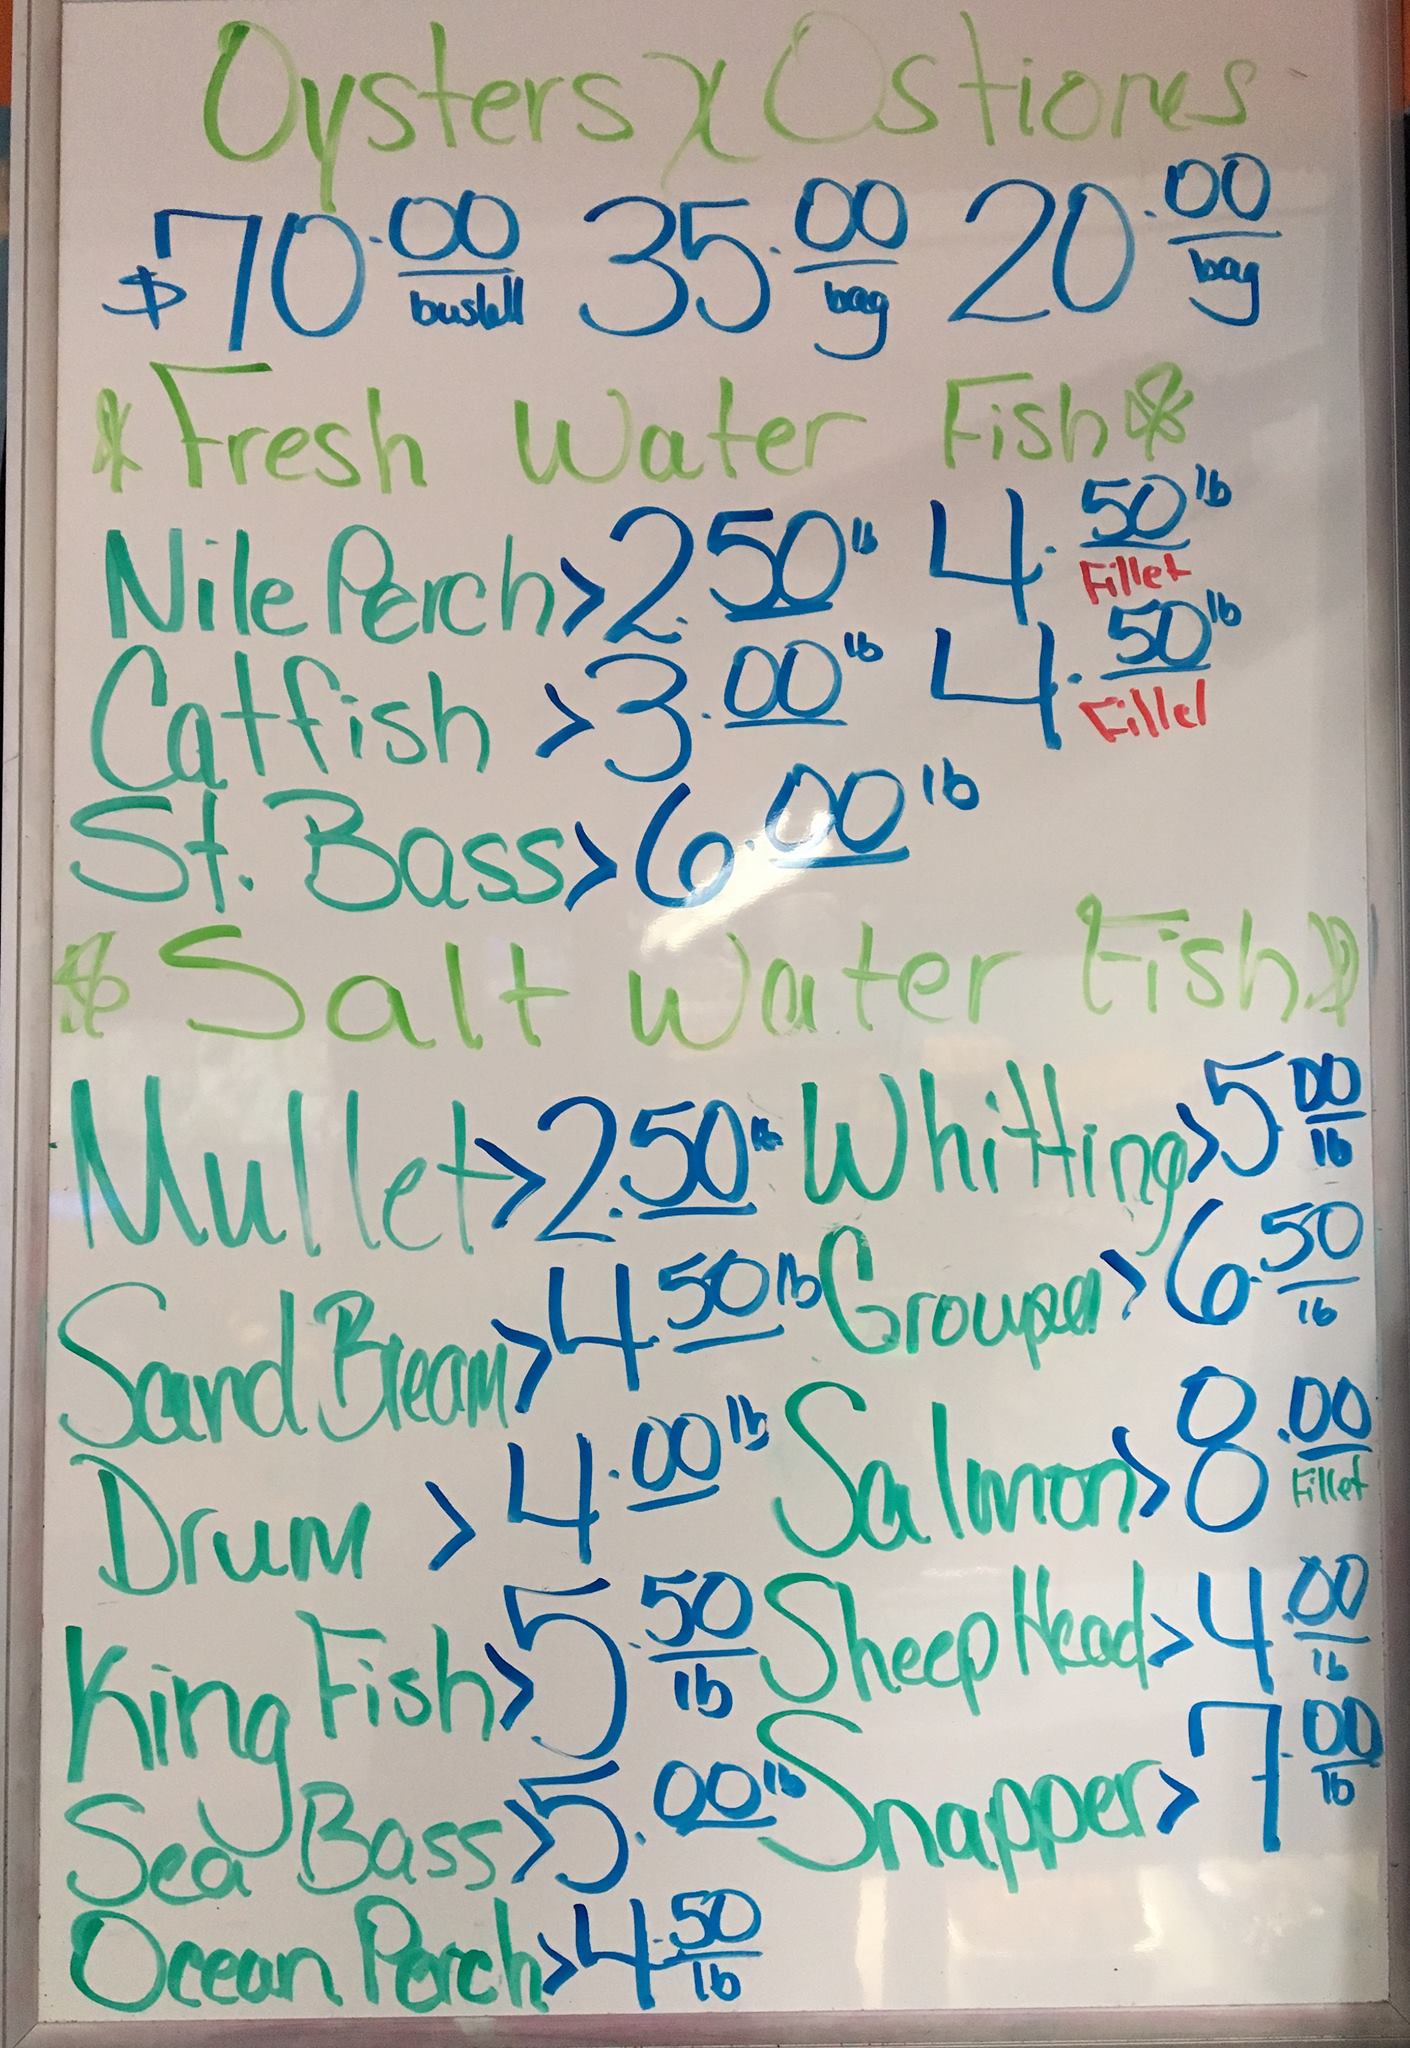 Oysters x Ostiones
$70.00 bushell 35.00 bag 20.00 bag
Fresh Water Fish
Nile Perch > 2.50 lb 4.50 lb Fillet
Catfish > 3.00 lb 4.50 lb Fillet
St. Bass > 6.00 lb
Salt Water Fish
Mullet > 2.50 lb
Sand Bream > 4.50 lb
Drum > 4.00 lb
King Fish > 5.50 lb
Sea Bass > 5.00 lb
Ocean Perch > 4.50 lb
Whitting > 5.00 lb
Grouper > 6.50 lb
Salmon > 8.00 Fillet
Sheep Head > 4.00 lb
Snapper > 7.00 lb